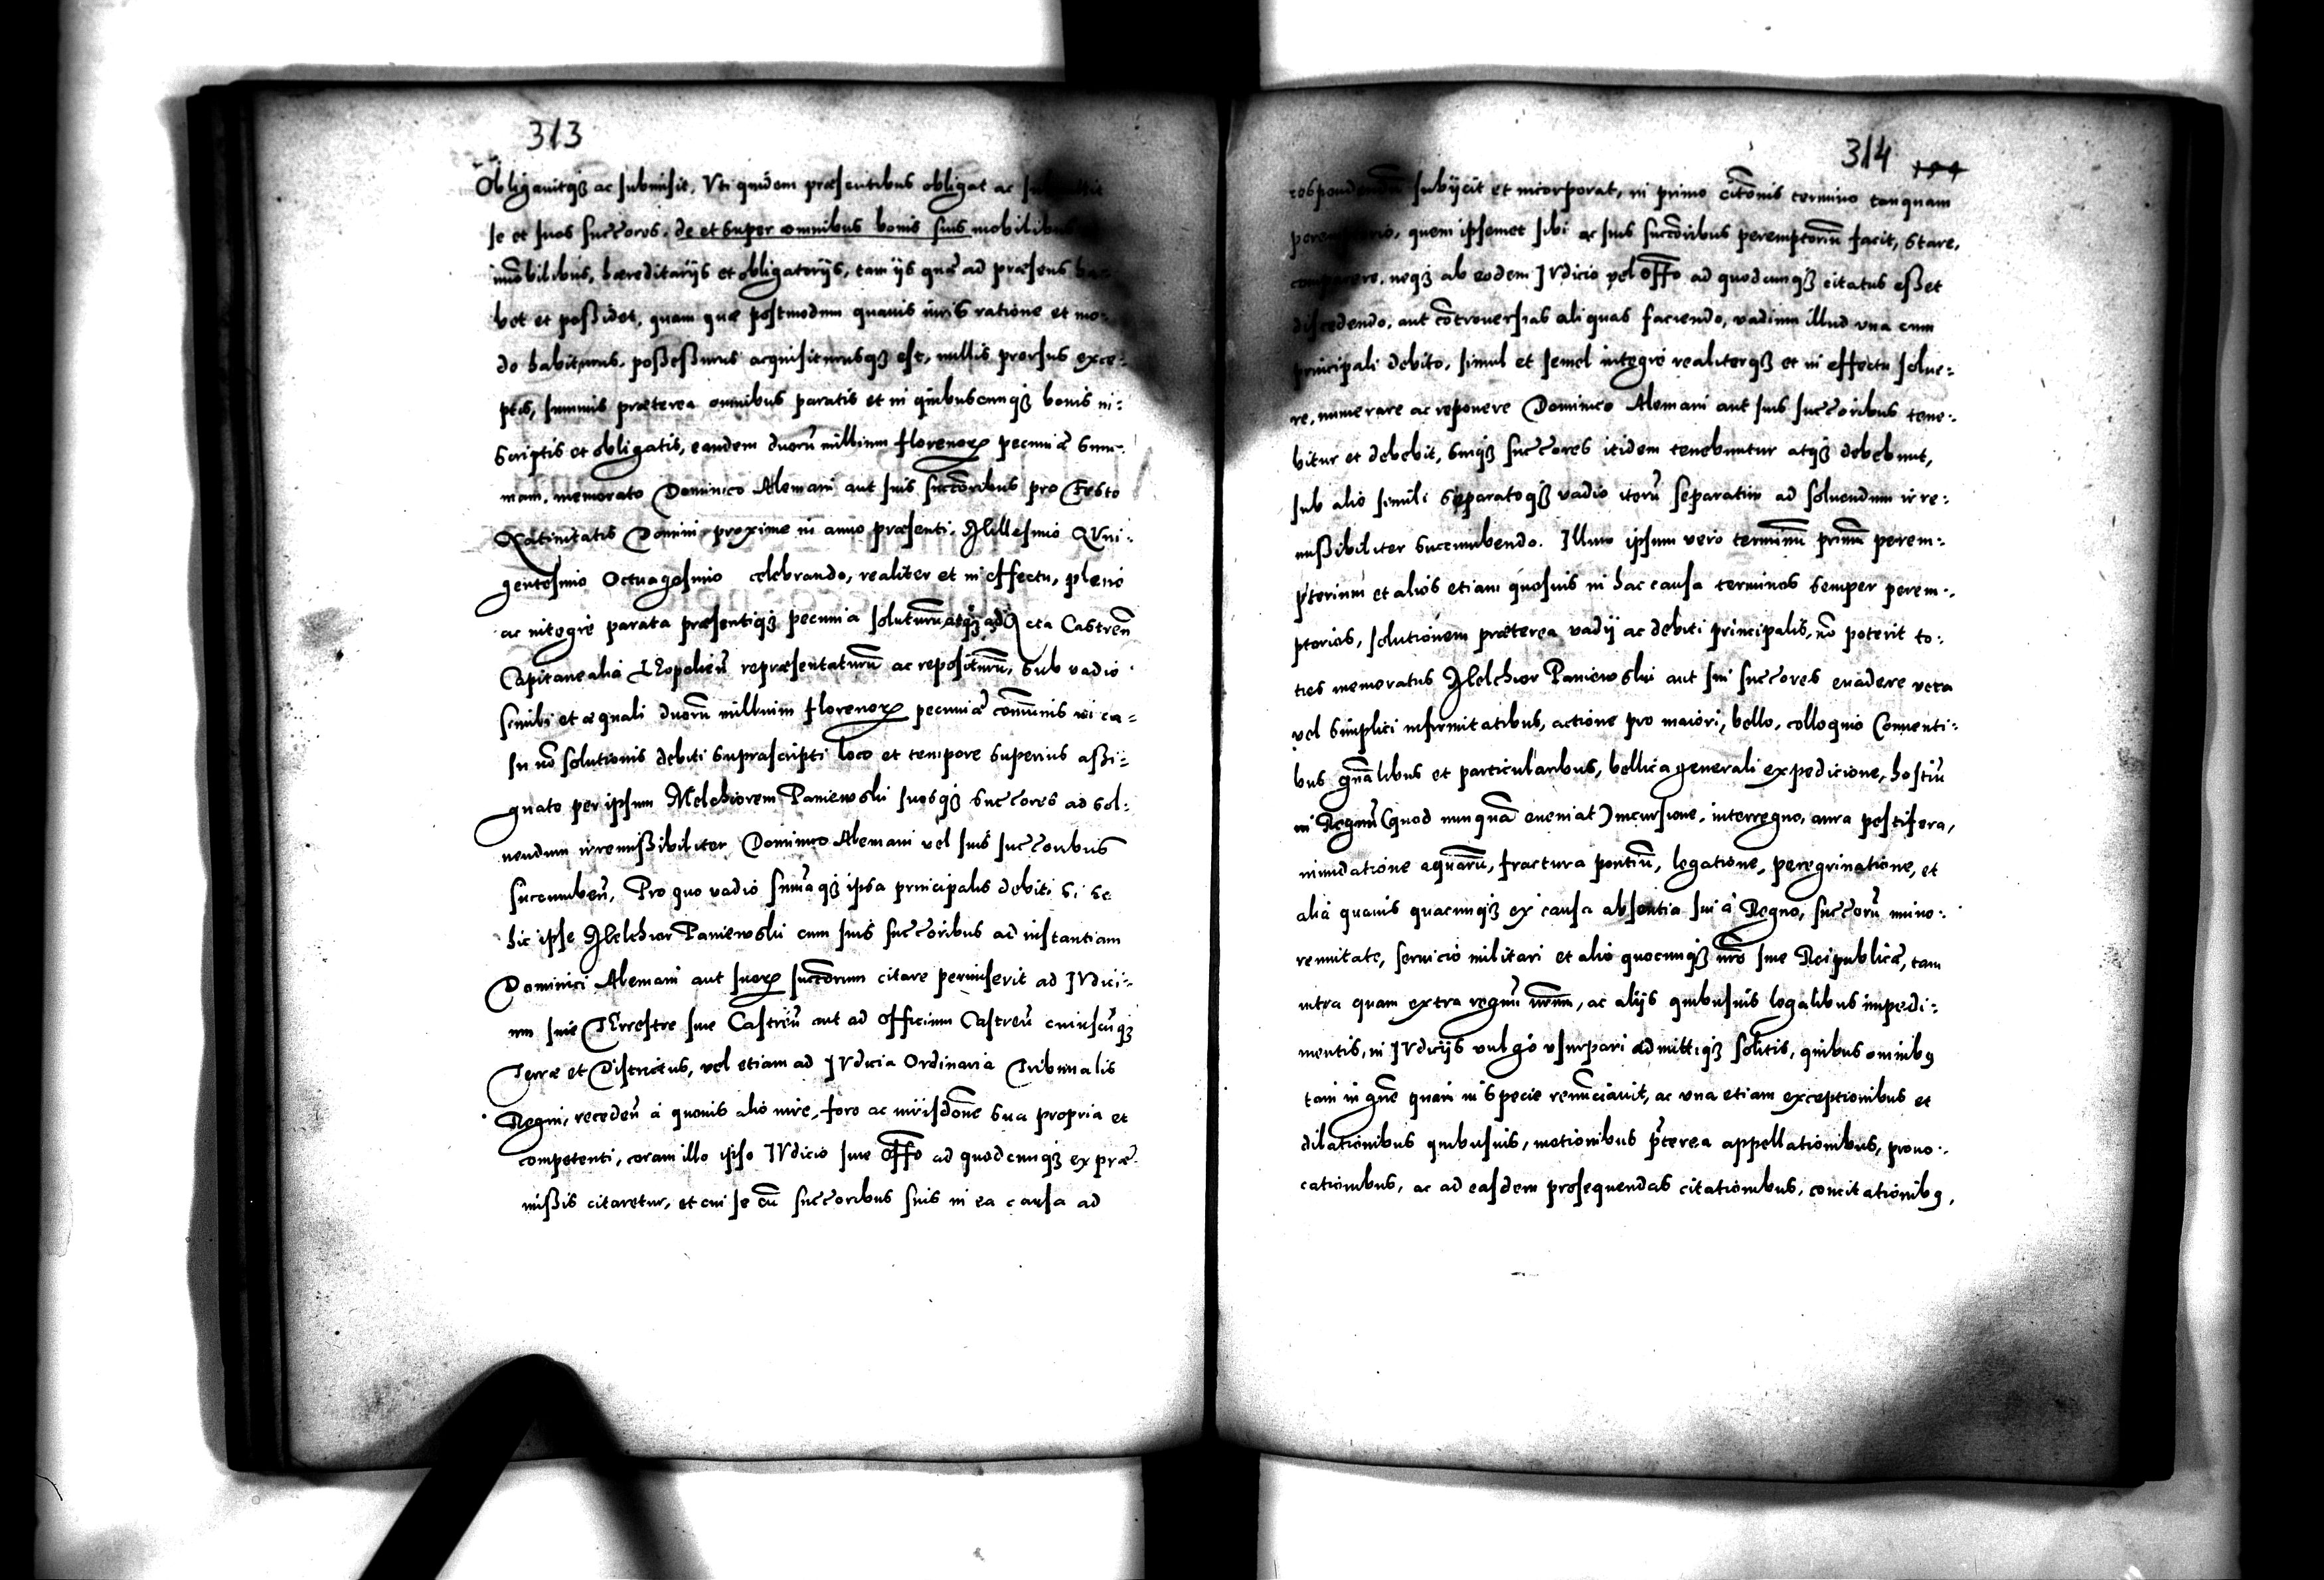 313
Obligauitqȝ ac submisit. Vti quidem præsentibus obligat ac
se et suos succ̃ores. de et super omnibus bonis suis mobilibus
im̃obilibus, hæreditarijs et obligatorijs, tam ijs quæ ad præsens ha-
bet et possidet, quam quæ postmodum quauis iuris ratione et mo-
do habiturus. possessurus acquisiturusqȝ est, nullis prorsus exce:
ptis, summis præterea omnibus paratis et in quibuscunqȝ bonis in:
scriptis et obligatis, eandem duorũ millium florenorꝝ pecuniæ sum-
mam. memorato Dominico Alemani aut suis succ̃oribus pro Festo
Natiuitatis Domini proxime in anno præsenti. Millesimo QVui:
gentesimo Octuagesimo celebrando, realiter et in effectu, pleno
ac integre parata præsentiqȝ pecunia soluturũ, atqȝ ad Acta Castreñ
Capitanealia Leopolieñ repræsentaturũ ac repositurũ, sub vadio
simili et æquali duorũ millium florenorꝝ pecuniæ com̃unis in ca=
su nõ solutionis debiti suprascripti loco et tempore superius assi:
gnato per ipsum Melchiorem Paniewski suosqȝ succ̃ores ad sol:
uendum irremissibiliter Dominico Alemani vel suis succ̃oribus
succumbeñ. Pro quo vadio sum̃aqȝ ipsa principalis debiti si se
hic ipse Melchior Paniewski cum suis succ̃oribus ad instantiam
Dominici Alemani aut suorꝝ succ̃orum citare permiserit ad IVdici:
um siue TErrestre siue Castreñ aut ad officium Castreñ cuiuscũqȝ
Terræ et Districtus, vel etiam ad IVdicia Ordinaria Tribunalis
Regni, recedeñ à quouis alio iure, foro ac iurisdic̃one sua propria et
competenti, coram illo ipso IVdicio siue off̃o ad quodcunqȝ ex præ
missis citaretur, et cui se cũ succ̃oribus suis in ea causa ad
314 154
respondendũ subijcit et incorporat, in primo cit̃onis termino tanquam
peremptorio, quem ipsemet sibi ac suis succ̃oribus peremptoriũ facit, stare,
comparere. neqȝ ab eodem IVdicio vel off̃o ad quodcunqȝ citatus esset
discedendo, aut cõtrouersias aliquas faciendo, vadium illud vna cum
principali debito, simul et semel integre realiterqȝ et in effectu solue:
re, numerare ac reponere Dominico Alemani aut suis succ̃oribus tene:
bitur et debebit, suiqȝ succ̃ores itidem tenebuntur atqȝ debebunt,
sub alio simili separatoqȝ vadio iterũ separatim ad soluendum irre:
missibiliter succumbendo. Illum ipsum vero terminũ primũ perem:
ptorium et alios etiam quosuis in hac causa terminos semper perem:
ptorios, solutionem præterea vadij ac debiti principalis, nõ poterit to:
ties memoratus Melchior Paniewski aut sui succ̃ores euadere vera
vel simplici infirmitatibus, actione pro maiori, bello, colloquio Conuenti:
bus gñalibus et particularibus, bellica generali expedicione, hostiũ
in Regnũ (quod nunquã eueniat) incursione, interregno, aura pestifera,
inundatione aquarũ, fractura pontiũ, legatione, peregrinatione, et
alia quauis quacunqȝ ex causa absentia sui à Regno, succ̃orũ mino:
rennitate, seruicio militari et alio quocunqȝ nr̃o siue Reipublicæ, tam
intra quam extra regnũ nr̃um, ac alijs quibusuis legalibus impedi:
mentis, in IVdicijs vulgo vsurpari admittiqȝ solitis, quibus omnibꝯ
tam in gñe quam in specie renũciauit, ac vna etiam exceptionibus et
dilationibus quibusuis, motionibus p̃terea appellationibus, prouo:
cationibus, ac ad easdem prosequendas citationibus, concitationibꝯ,